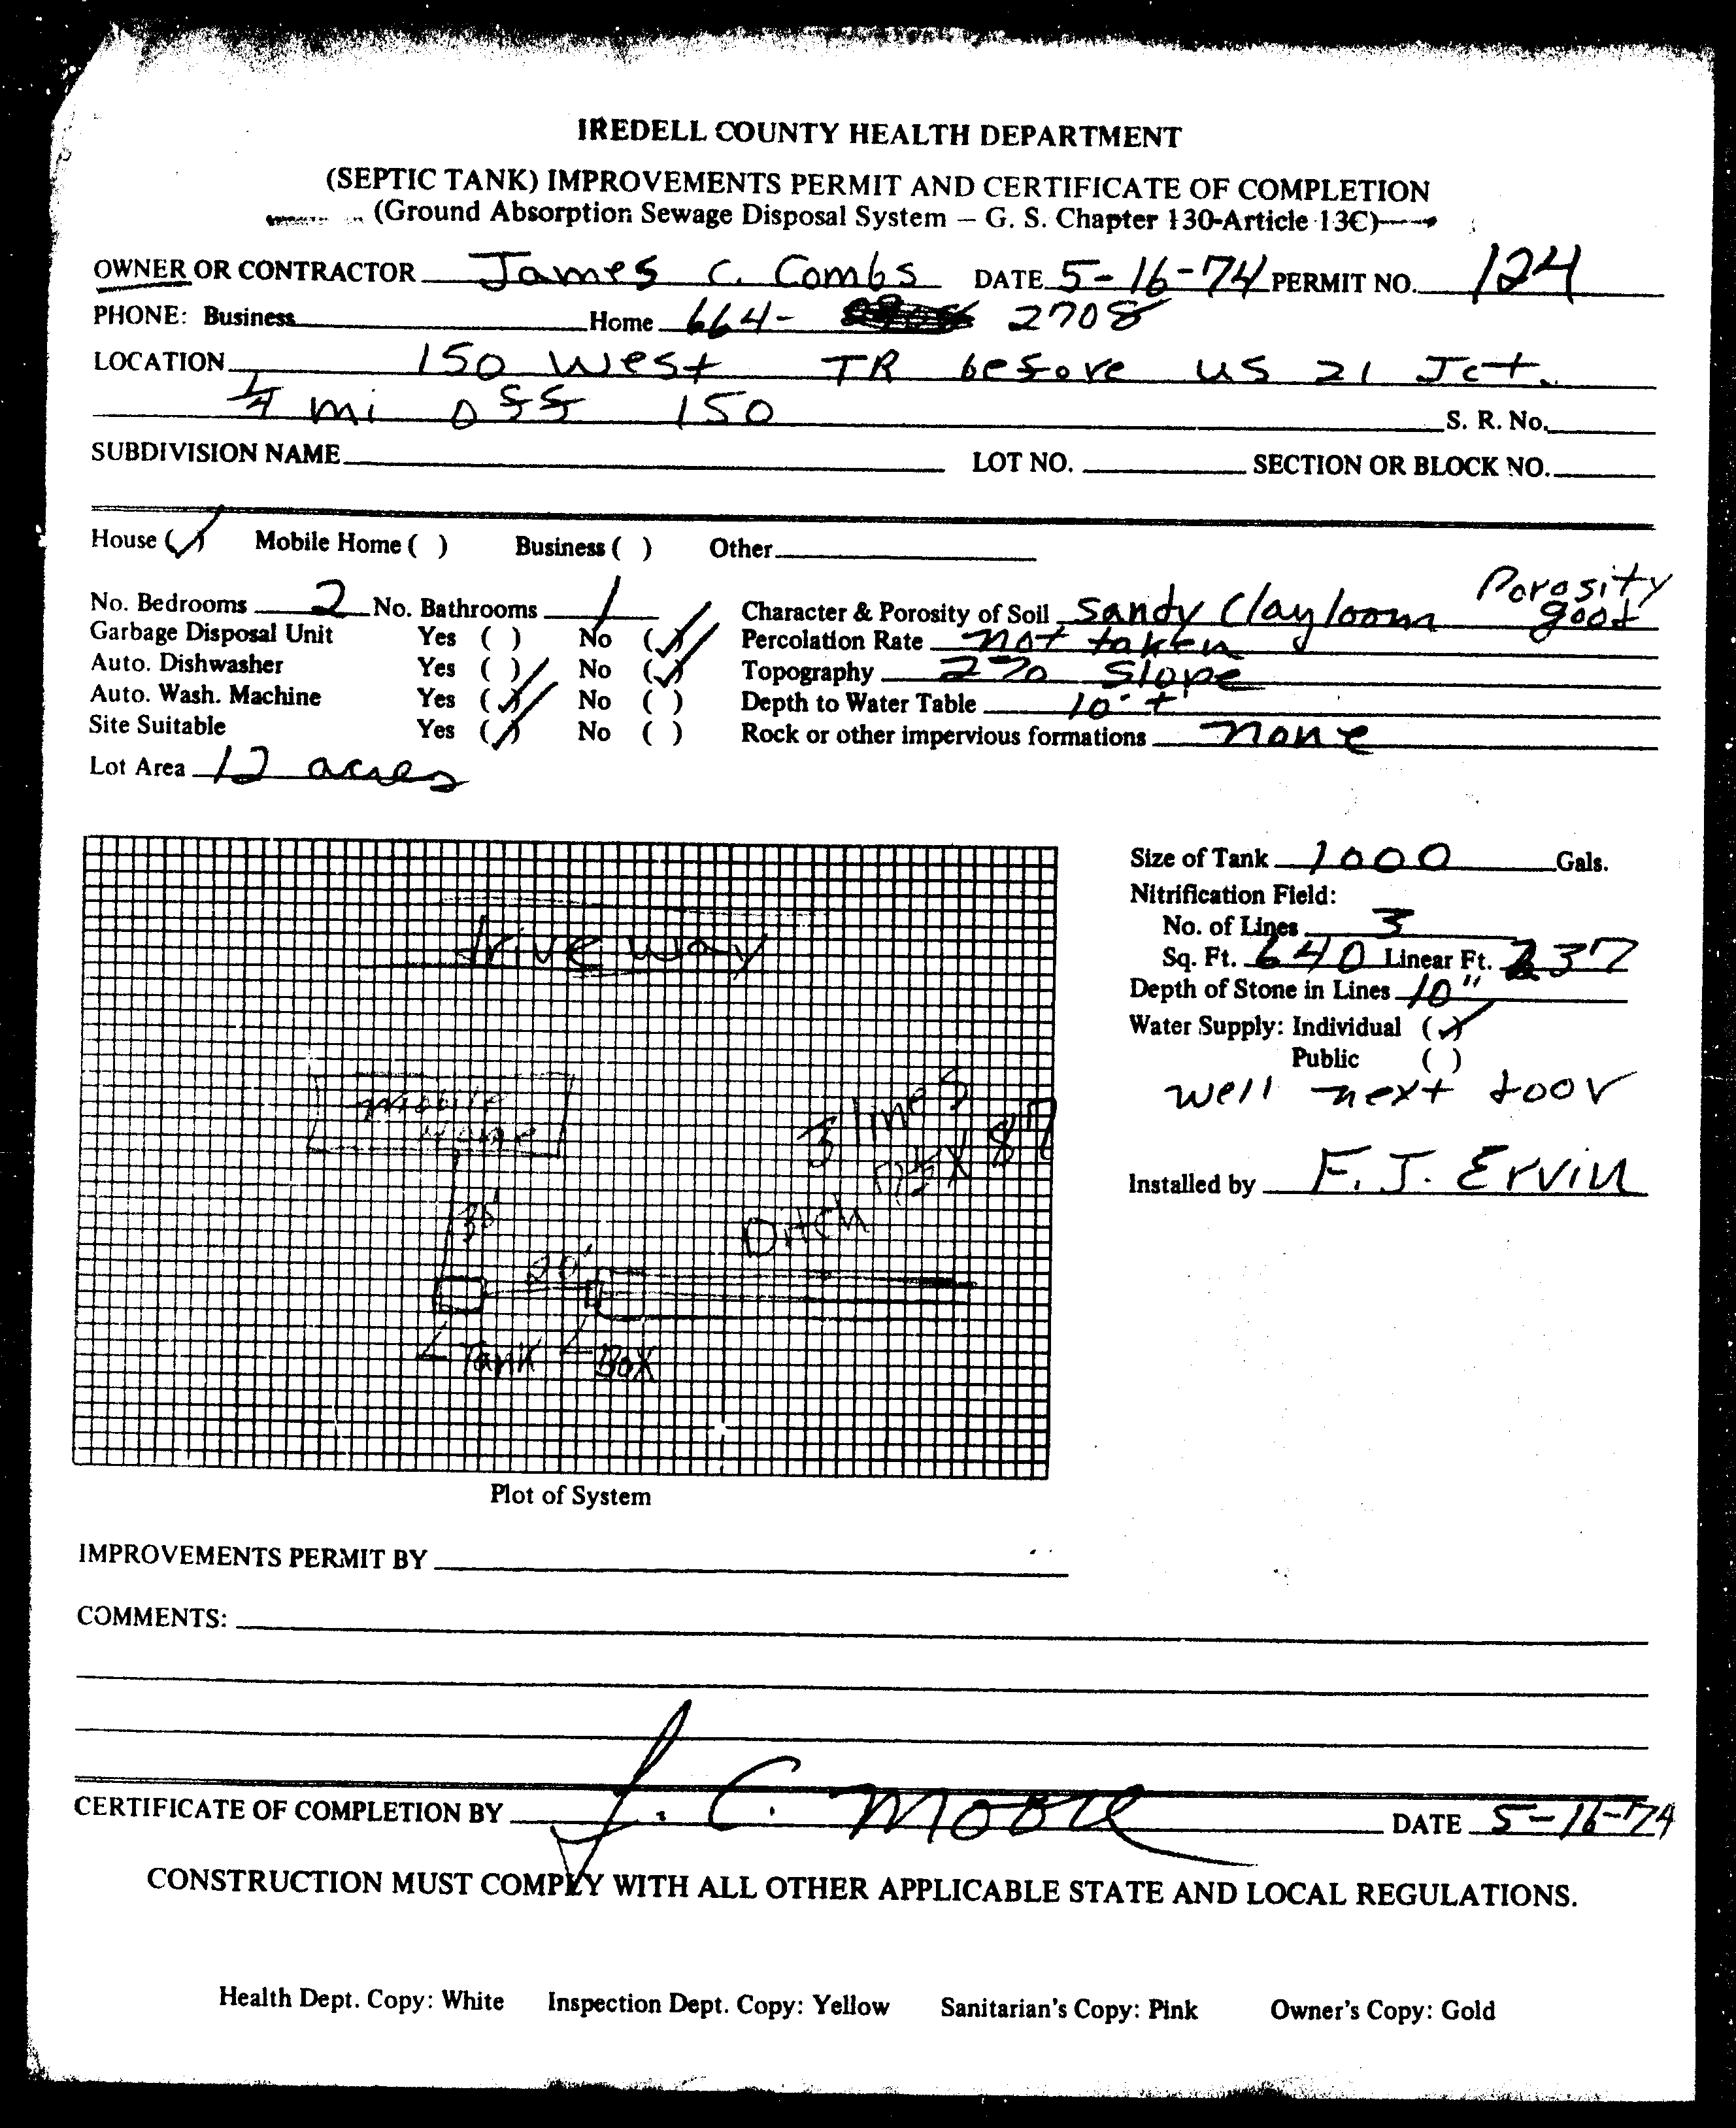 IREDELL COUNTY HEALTH DEPARTMENT
(SEPTIC TANK) IMPROVEMENTS PERMIT AND CERTIFICATE OF COMPLETION
(Ground Absorption Sewage Disposal System – G. S. Chapter 130-Article 13C)
OWNER OR CONTRACTOR James C. Combs DATE 5-16-74 PERMIT NO. 124
PHONE: Business Home 664- 2708
LOCATION 150 West TR before US 21 Jct.
1/4 mi off 150 S. R. No.
SUBDIVISION NAME LOT NO. SECTION OR BLOCK NO.
House (✓) Mobile Home ( ) Business ( ) Other
No. Bedrooms 2 No. Bathrooms 1 Character & Porosity of Soil Sandy Clay loam Porosity good
Garbage Disposal Unit Yes ( ) No (✓) Percolation Rate not taken
Auto. Dishwasher Yes ( ) No (✓) Topography 2% slope
Auto. Wash. Machine Yes (✓) No ( ) Depth to Water Table 10' +
Site Suitable Yes (✓) No ( ) Rock or other impervious formations none
Lot Area 12 acres
Size of Tank 1000 Gals.
Nitrification Field:
No. of Lines 3
Sq. Ft. 640 Linear Ft. 237
Depth of Stone in Lines 10"
Water Supply: Individual (✓)
Public ( )
well next door
Installed by F. J. Ervin
driveway
mobile
home
3 lines
Ditch
20'
Tank Box
Plot of System
IMPROVEMENTS PERMIT BY
COMMENTS:
CERTIFICATE OF COMPLETION BY J. C. Moore DATE 5-16-74
CONSTRUCTION MUST COMPLY WITH ALL OTHER APPLICABLE STATE AND LOCAL REGULATIONS.
Health Dept. Copy: White Inspection Dept. Copy: Yellow Sanitarian's Copy: Pink Owner's Copy: Gold